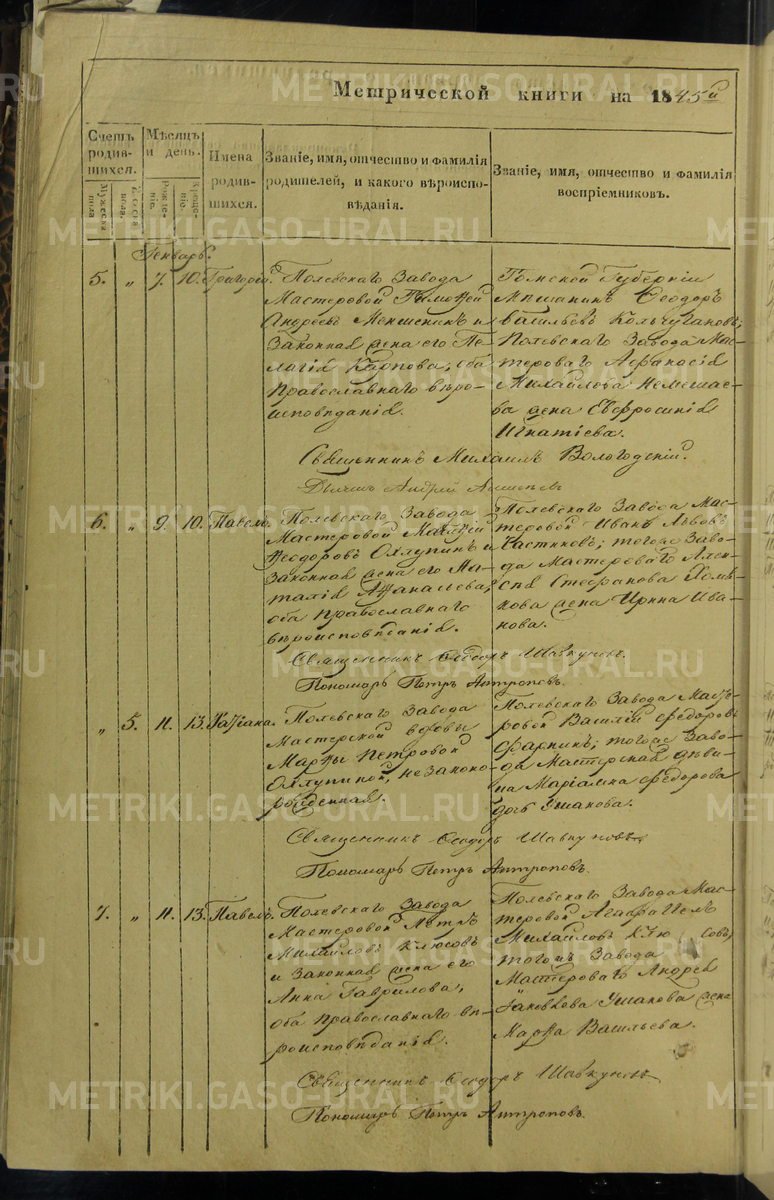 Метрической книги на 1845й
Счетъ родившихся.
Мѣсяцъ и день.
Имена родившихся.
Званіе, имя, отчество и фамилія
родителей, и какого вѣроиспо-
вѣданія.
Званіе, имя, отчество и фамилія
воспріемниковъ.
Мужеска пола
Женска пола.
Рожде-
ніе.
Креще-
ніе.
Генварь.
5. „ 7. 10. Григорій.
Полевскаго Завода
Мастеровой Тимоѳей
Андреевъ Меншенинъ и
Законная жена его Пе-
лагія Карпова, оба
Православнаго вѣро-
исповѣданія.
Томской Губерніи
Мѣщанинъ Ѳеодоръ
Васильевъ Кольчугановъ,
Полевскаго Завода Мас-
тероваго Аѳанасія
Михайлова Немешае-
ва жена Евфросинія
Игнатіева.
Священникъ Михаилъ Вологодскій.
Дьячекъ Андрей
6. „ 9. 10. Павелъ.
Полевскаго Завода
Мастеровой Матѳей
Ѳеодоровъ Охлупинъ и
Законная жена его На-
талія Аѳанасьева,
оба православнаго
вѣроисповѣданія.
Полевскаго Завода Мас-
теровой Иванъ Львовъ
Чистяковъ; тогоже Заво-
да Мастероваго Алек-
сѣя Стефанова Хомя-
кова жена Ирина Ива-
нова.
Священникъ Ѳеодоръ Шавкуновъ.
Пономарь Петръ Антроповъ.
„ 5. 11. 13. Татіана.
Полевскаго Завода
Мастерской вдовы
Марѳы Петровой
Охлупиной, незаконо-
рожденная.
Полевскаго Завода Масте-
ровой Василій Ѳедоровъ
тогоже Заво-
да Мастерская дѣви-
ца Маріамна Ѳедорова
дочь Ушакова.
Священникъ Ѳеодоръ Шавкуновъ
Пономарь Петръ Антроповъ.
7. „ 11. 13. Павелъ.
Полевскаго Завода
Мастеровой Петръ
Михайловъ Клюсовъ
и Законная жена его
Анна Гаврилова,
оба православнаго вѣ-
роисповѣданія.
Полевскаго Завода Мас-
теровой
Михайловъ Клю совъ,
тогожъ Завода
Мастероваго Андрея
Яковлева Ушакова жена
Марѳа Васильева.
Священникъ Ѳеодоръ Шавкуновъ
Пономарь Петръ Антроповъ.
METRIKI.GASO-URAL.RU